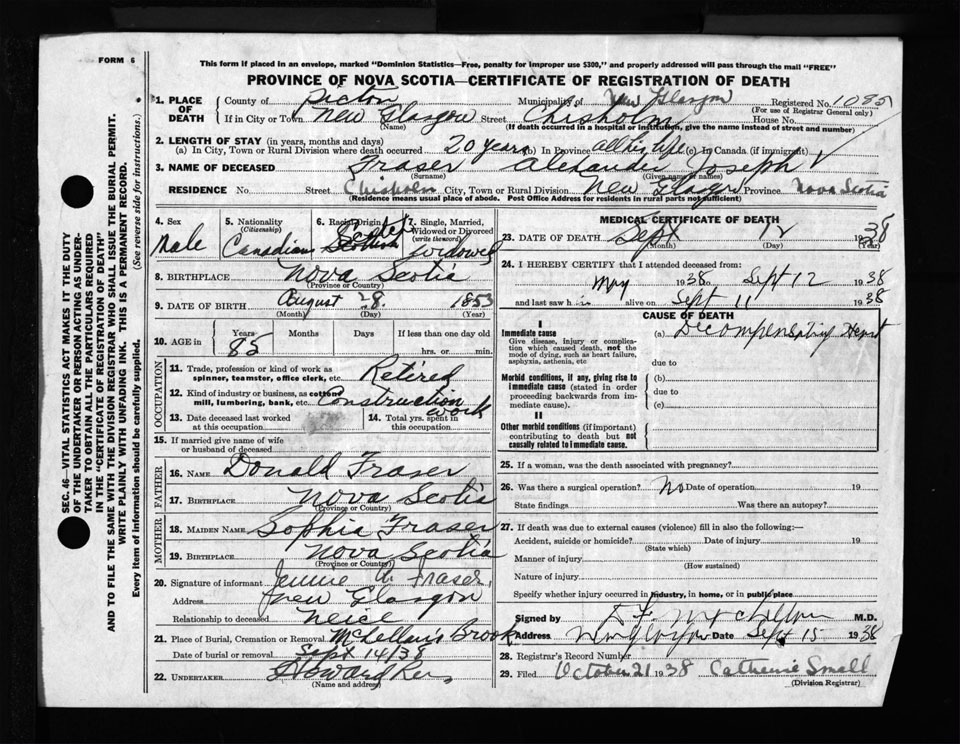 FORM 6
This form if placed in an envelope, marked "Dominion Statistics—Free, penalty for improper use $300," and properly addressed will pass through the mail "FREE"
PROVINCE OF NOVA SCOTIA—CERTIFICATE OF REGISTRATION OF DEATH
1. PLACE OF DEATH
County of Pictou Municipality of New Glasgow Registered No. 1085
(For use of Registrar General only)
If in City or Town New Glasgow Street Chisholm House No.
(Name) (If death occurred in a hospital or institution, give the name instead of street and number)
2. LENGTH OF STAY (in years, months and days)
(a) In City, Town or Rural Division where death occurred 20 years (b) In Province all his life (c) In Canada (if immigrant)
3. NAME OF DECEASED Fraser Alexander Joseph
(Surname) (Given name or names)
RESIDENCE No. Street Chisholm City, Town or Rural Division New Glasgow Province Nova Scotia
(Residence means usual place of abode. Post Office Address for residents in rural parts not sufficient)
4. Sex Male
5. Nationality (Citizenship) Canadian
6. Racial Origin Scotch Scottish
7. Single, Married, Widowed or Divorced (write the word) Widowed
8. BIRTHPLACE Nova Scotia
(Province or Country)
9. DATE OF BIRTH August 28 1853
(Month) (Day) (Year)
10. AGE in Years 85 Months Days If less than one day old
hrs. or min.
OCCUPATION
11. Trade, profession or kind of work as spinner, teamster, office clerk, etc. Retired
12. Kind of industry or business, as cotton mill, lumbering, bank, etc. Construction work
13. Date deceased last worked at this occupation
14. Total yrs. spent in this occupation
15. If married give name of wife or husband of deceased
FATHER
16. NAME Donald Fraser
17. BIRTHPLACE Nova Scotia
(Province or Country)
MOTHER
18. MAIDEN NAME Sophia Fraser
19. BIRTHPLACE Nova Scotia
(Province or Country)
20. Signature of informant Jennie A. Fraser
Address New Glasgow
Relationship to deceased Neice
21. Place of Burial, Cremation or Removal McLellan's Brook
Date of burial or removal Sept 14/38
22. UNDERTAKER
(Name and address)
MEDICAL CERTIFICATE OF DEATH
23. DATE OF DEATH Sept 12 1938
(Month) (Day) (Year)
24. I HEREBY CERTIFY that I attended deceased from:
May 1938 Sept 12 1938
and last saw him alive on Sept 11 1938
CAUSE OF DEATH
I
Immediate cause
Give disease, injury or complication which caused death, not the mode of dying, such as heart failure, asphyxia, asthenia, etc
(a) Decompensating Heart
due to
Morbid conditions, if any, giving rise to immediate cause (stated in order proceeding backwards from immediate cause).
(b)
due to
(c)
II
Other morbid conditions (if important) contributing to death but not causally related to immediate cause.
25. If a woman, was the death associated with pregnancy?
26. Was there a surgical operation? No Date of operation 19
State findings Was there an autopsy?
27. If death was due to external causes (violence) fill in also the following:—
Accident, suicide or homicide? Date of injury 19
(State which)
Manner of injury
(How sustained)
Nature of injury
Specify whether injury occurred in industry, in home, or in public place
Signed by M.D.
Address New Glasgow Date Sept 15 1938
28. Registrar's Record Number
29. Filed October 21 1938 Catherine Small
(Division Registrar)
SEC. 46—VITAL STATISTICS ACT MAKES IT THE DUTY
OF THE UNDERTAKER OR PERSON ACTING AS UNDER-
TAKER TO OBTAIN ALL THE PARTICULARS REQUIRED
IN THE "CERTIFICATE OF REGISTRATION OF DEATH"
AND TO FILE THE SAME WITH THE DIVISION REGISTRAR WHO SHALL ISSUE THE BURIAL PERMIT.
WRITE PLAINLY WITH UNFADING INK. THIS IS A PERMANENT RECORD.
Every item of information should be carefully supplied. (See reverse side for instructions.)